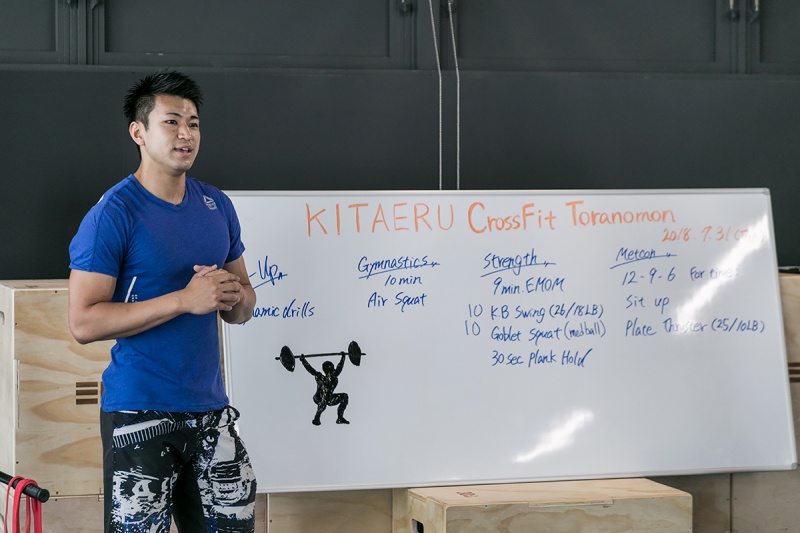 KITAERU CrossFit Toranomon
2018.7.31
-Up
Dynamic drills
Gymnastics
10 min
Air Squat
Strength
9min EMOM
10 KB Swing (26/18LB)
10 Goblet Squat (medball)
30sec Plank Hold
Metcon
12-9-6 For time
Sit up
Plate Thruster (25/10LB)